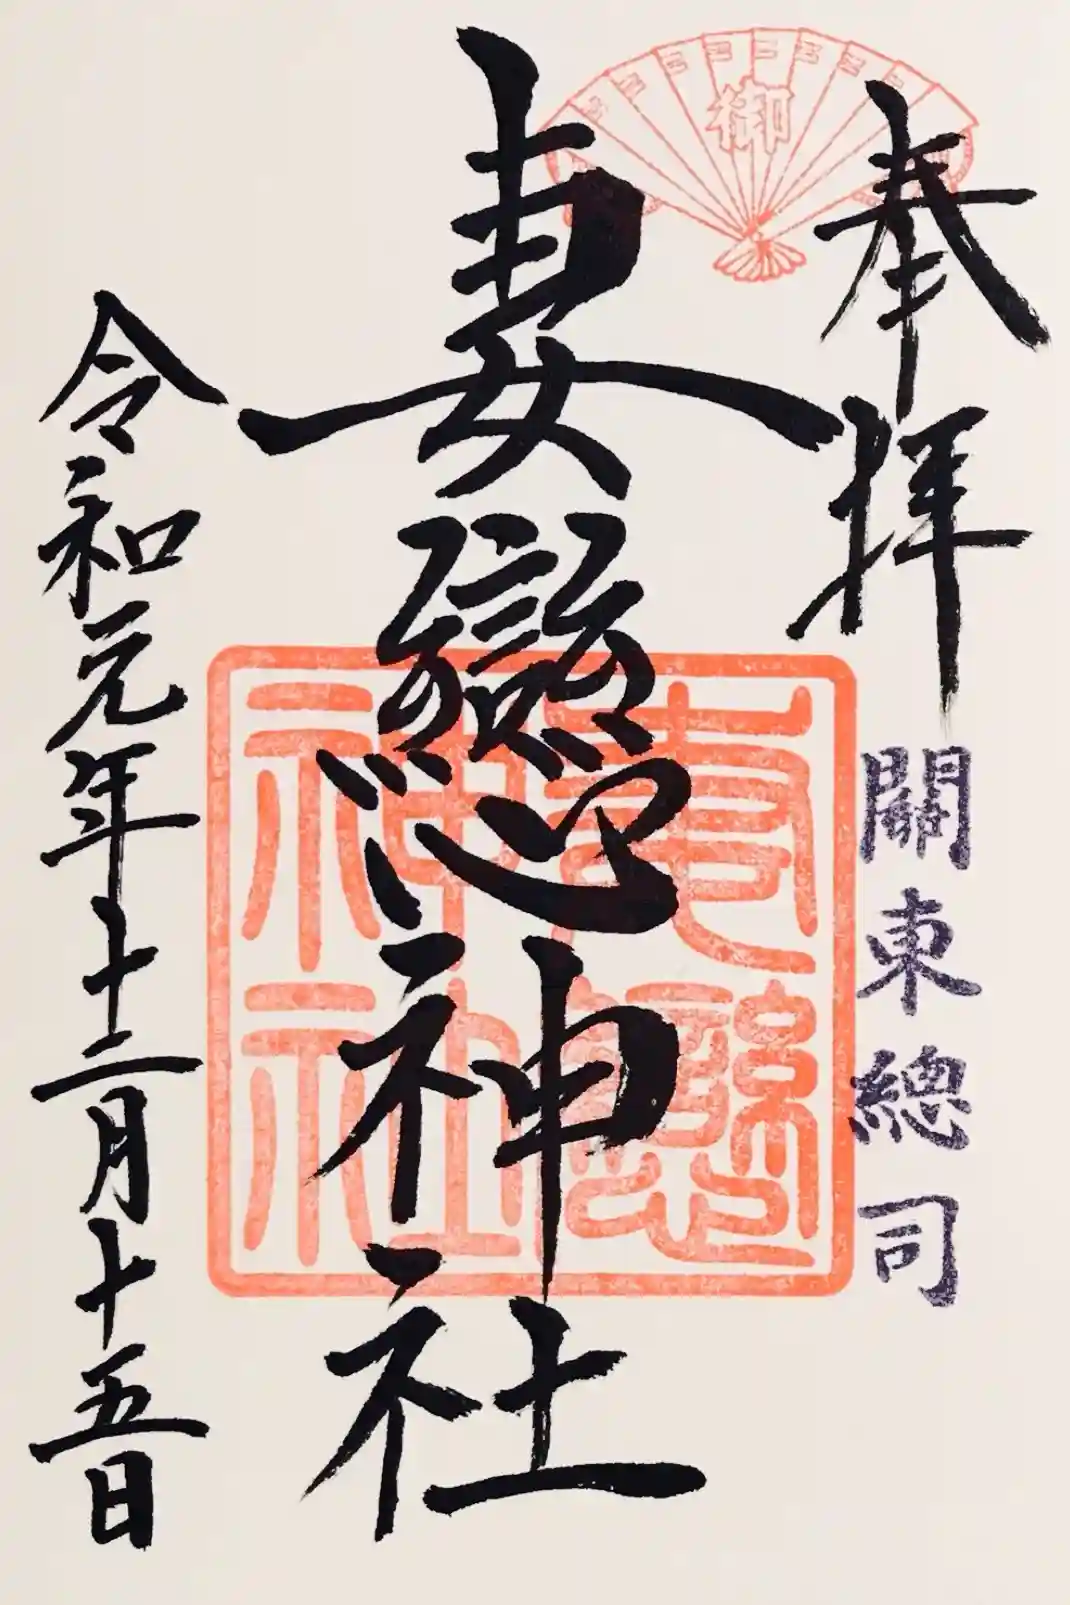 奉拝
關東總司
御
妻戀神社
妻戀神社
令和元年十二月十五日